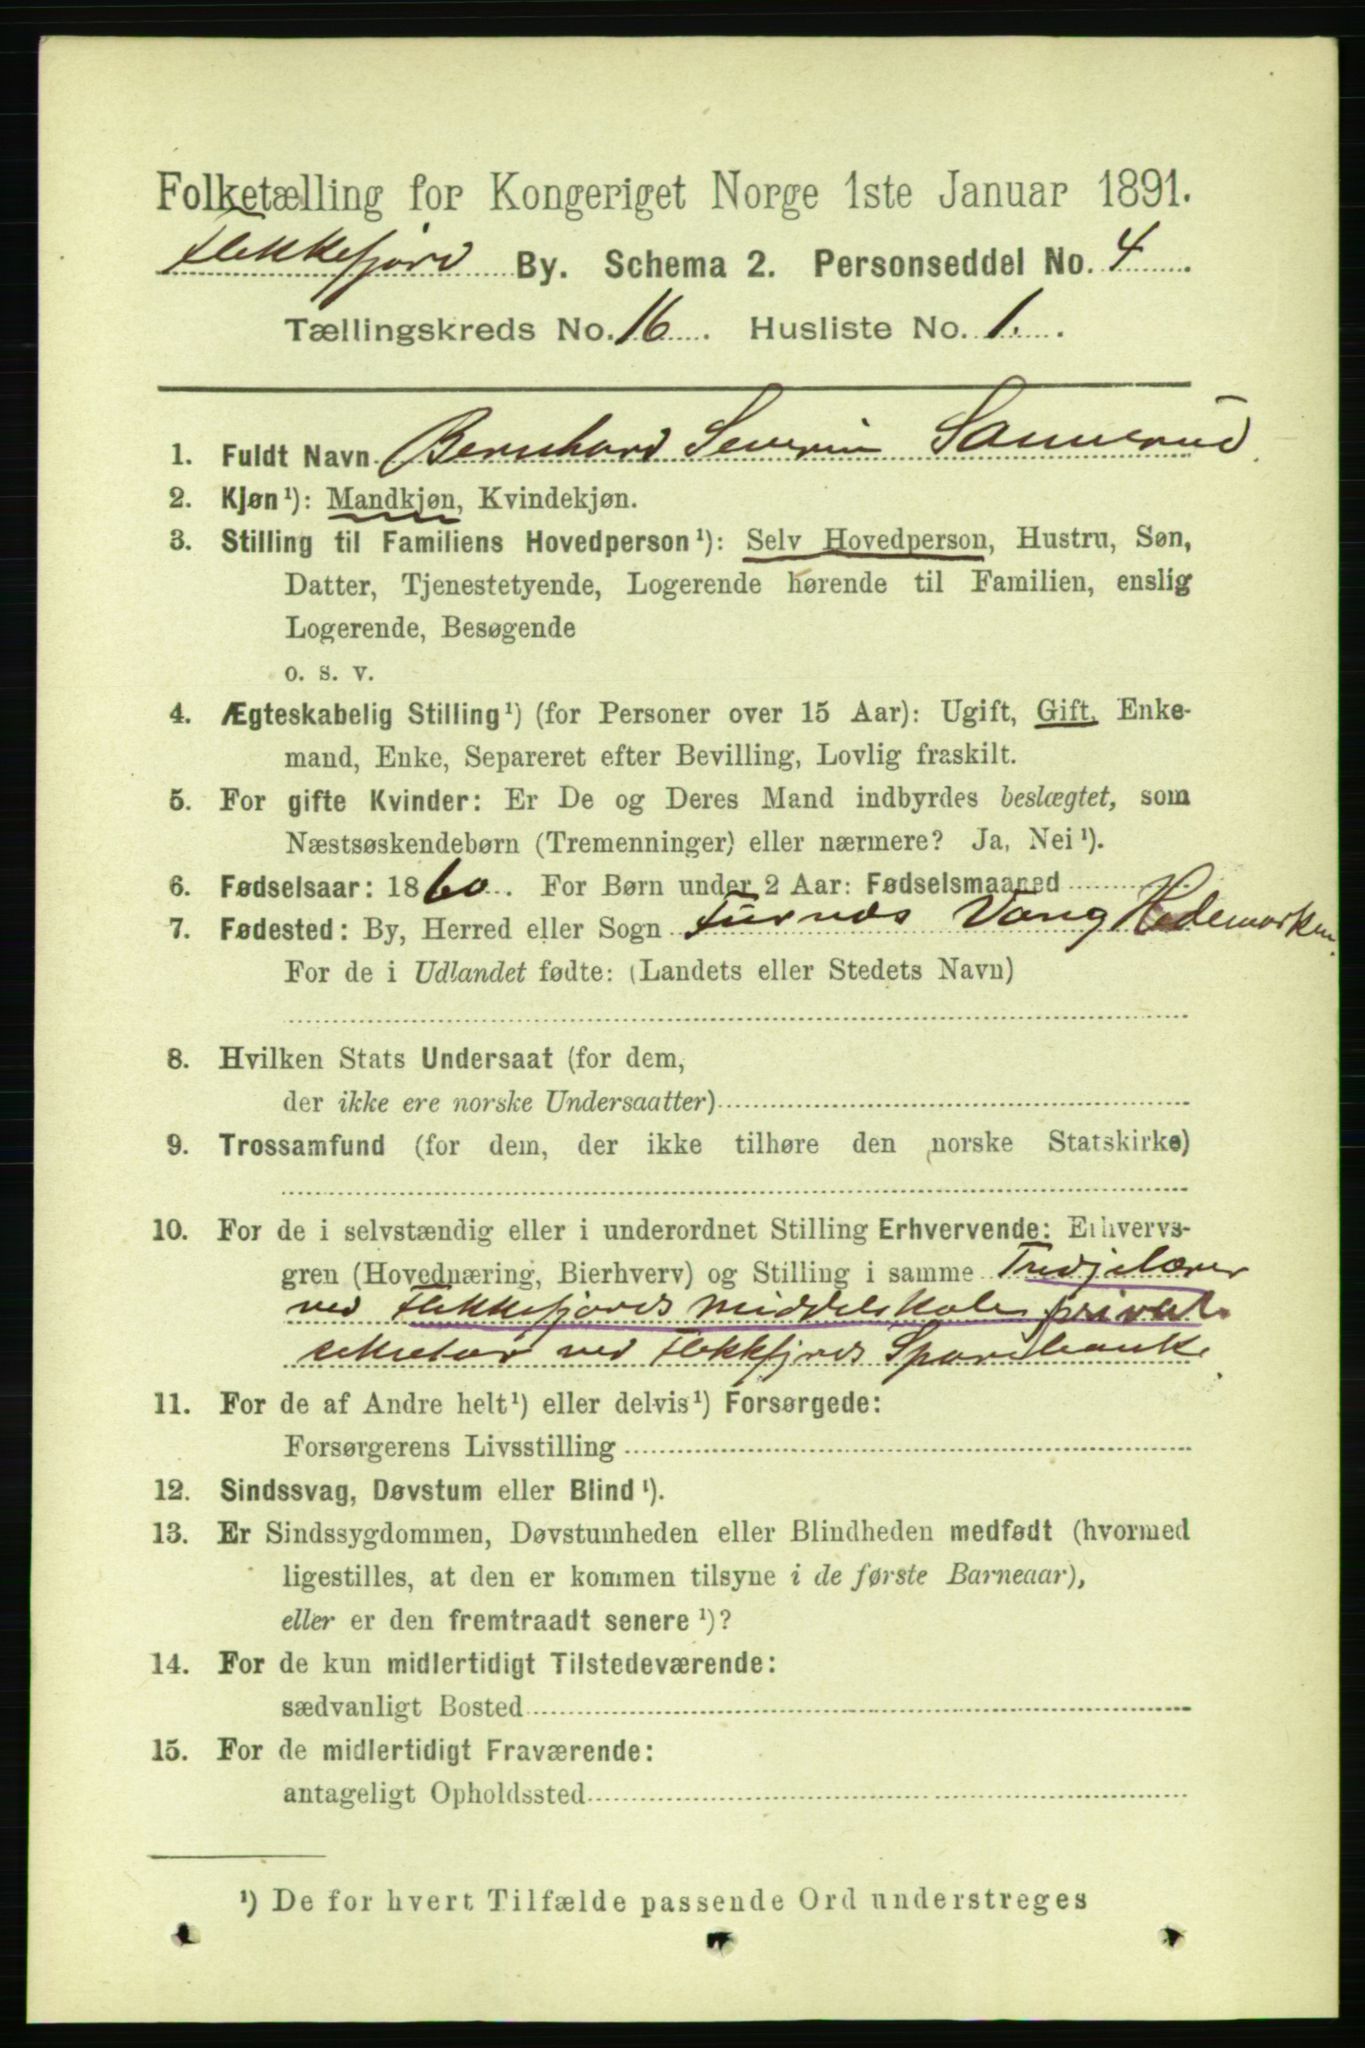 Folketælling for Kongeriget Norge 1ste Januar 1891.
Flekkefjord By. Schema 2. Personseddel No. 4
Tællingskreds No. 16. Husliste No. 1.
1. Fuldt Navn Bernhard Severin Sannerud
2. Kjøn¹): Mandkjøn, Kvindekjøn.
3. Stilling til Familiens Hovedperson¹): Selv Hovedperson, Hustru, Søn,
Datter, Tjenestetyende, Logerende hørende til Familien, enslig
Logerende, Besøgende
o. s. v.
4. Ægteskabelig Stilling¹) (for Personer over 15 Aar): Ugift, Gift, Enke-
mand, Enke, Separeret efter Bevilling, Lovlig fraskilt.
5. For gifte Kvinder: Er De og Deres Mand indbyrdes beslægtet, som
Næstsøskendebørn (Tremenninger) eller nærmere? Ja, Nei¹).
6. Fødselsaar: 1860. For Børn under 2 Aar: Fødselsmaaned
7. Fødested: By, Herred eller Sogn Furnæs Vang Hedemarken.
For de i Udlandet fødte: (Landets eller Stedets Navn)
8. Hvilken Stats Undersaat (for dem,
der ikke ere norske Undersaatter)
9. Trossamfund (for dem, der ikke tilhøre den norske Statskirke)
10. For de i selvstændig eller i underordnet Stilling Erhvervende: Erhvervs-
gren (Hovednæring, Bierhverv) og Stilling i samme Tredjelærer
ved Flekkefjords middelskole, privat
sekretær ved Flekkefjords Sparebank.
11. For de af Andre helt¹) eller delvis¹) Forsørgede:
Forsørgerens Livsstilling
12. Sindssvag, Døvstum eller Blind¹).
13. Er Sindssygdommen, Døvstumheden eller Blindheden medfødt (hvormed
ligestilles, at den er kommen tilsyne i de første Barneaar),
eller er den fremtraadt senere¹)?
14. For de kun midlertidigt Tilstedeværende:
sædvanligt Bosted
15. For de midlertidigt Fraværende:
antageligt Opholdssted
¹) De for hvert Tilfælde passende Ord understreges